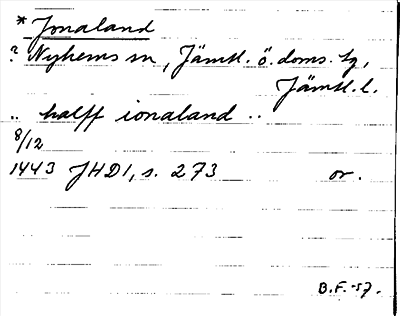 * Jonaland
? Nyhems sn, Jämtl. ö. doms. tg,
Jämtl. l.
.. halff ionaland ..
8/12
1443 JHD1, s. 273 or.
B.F.-57.